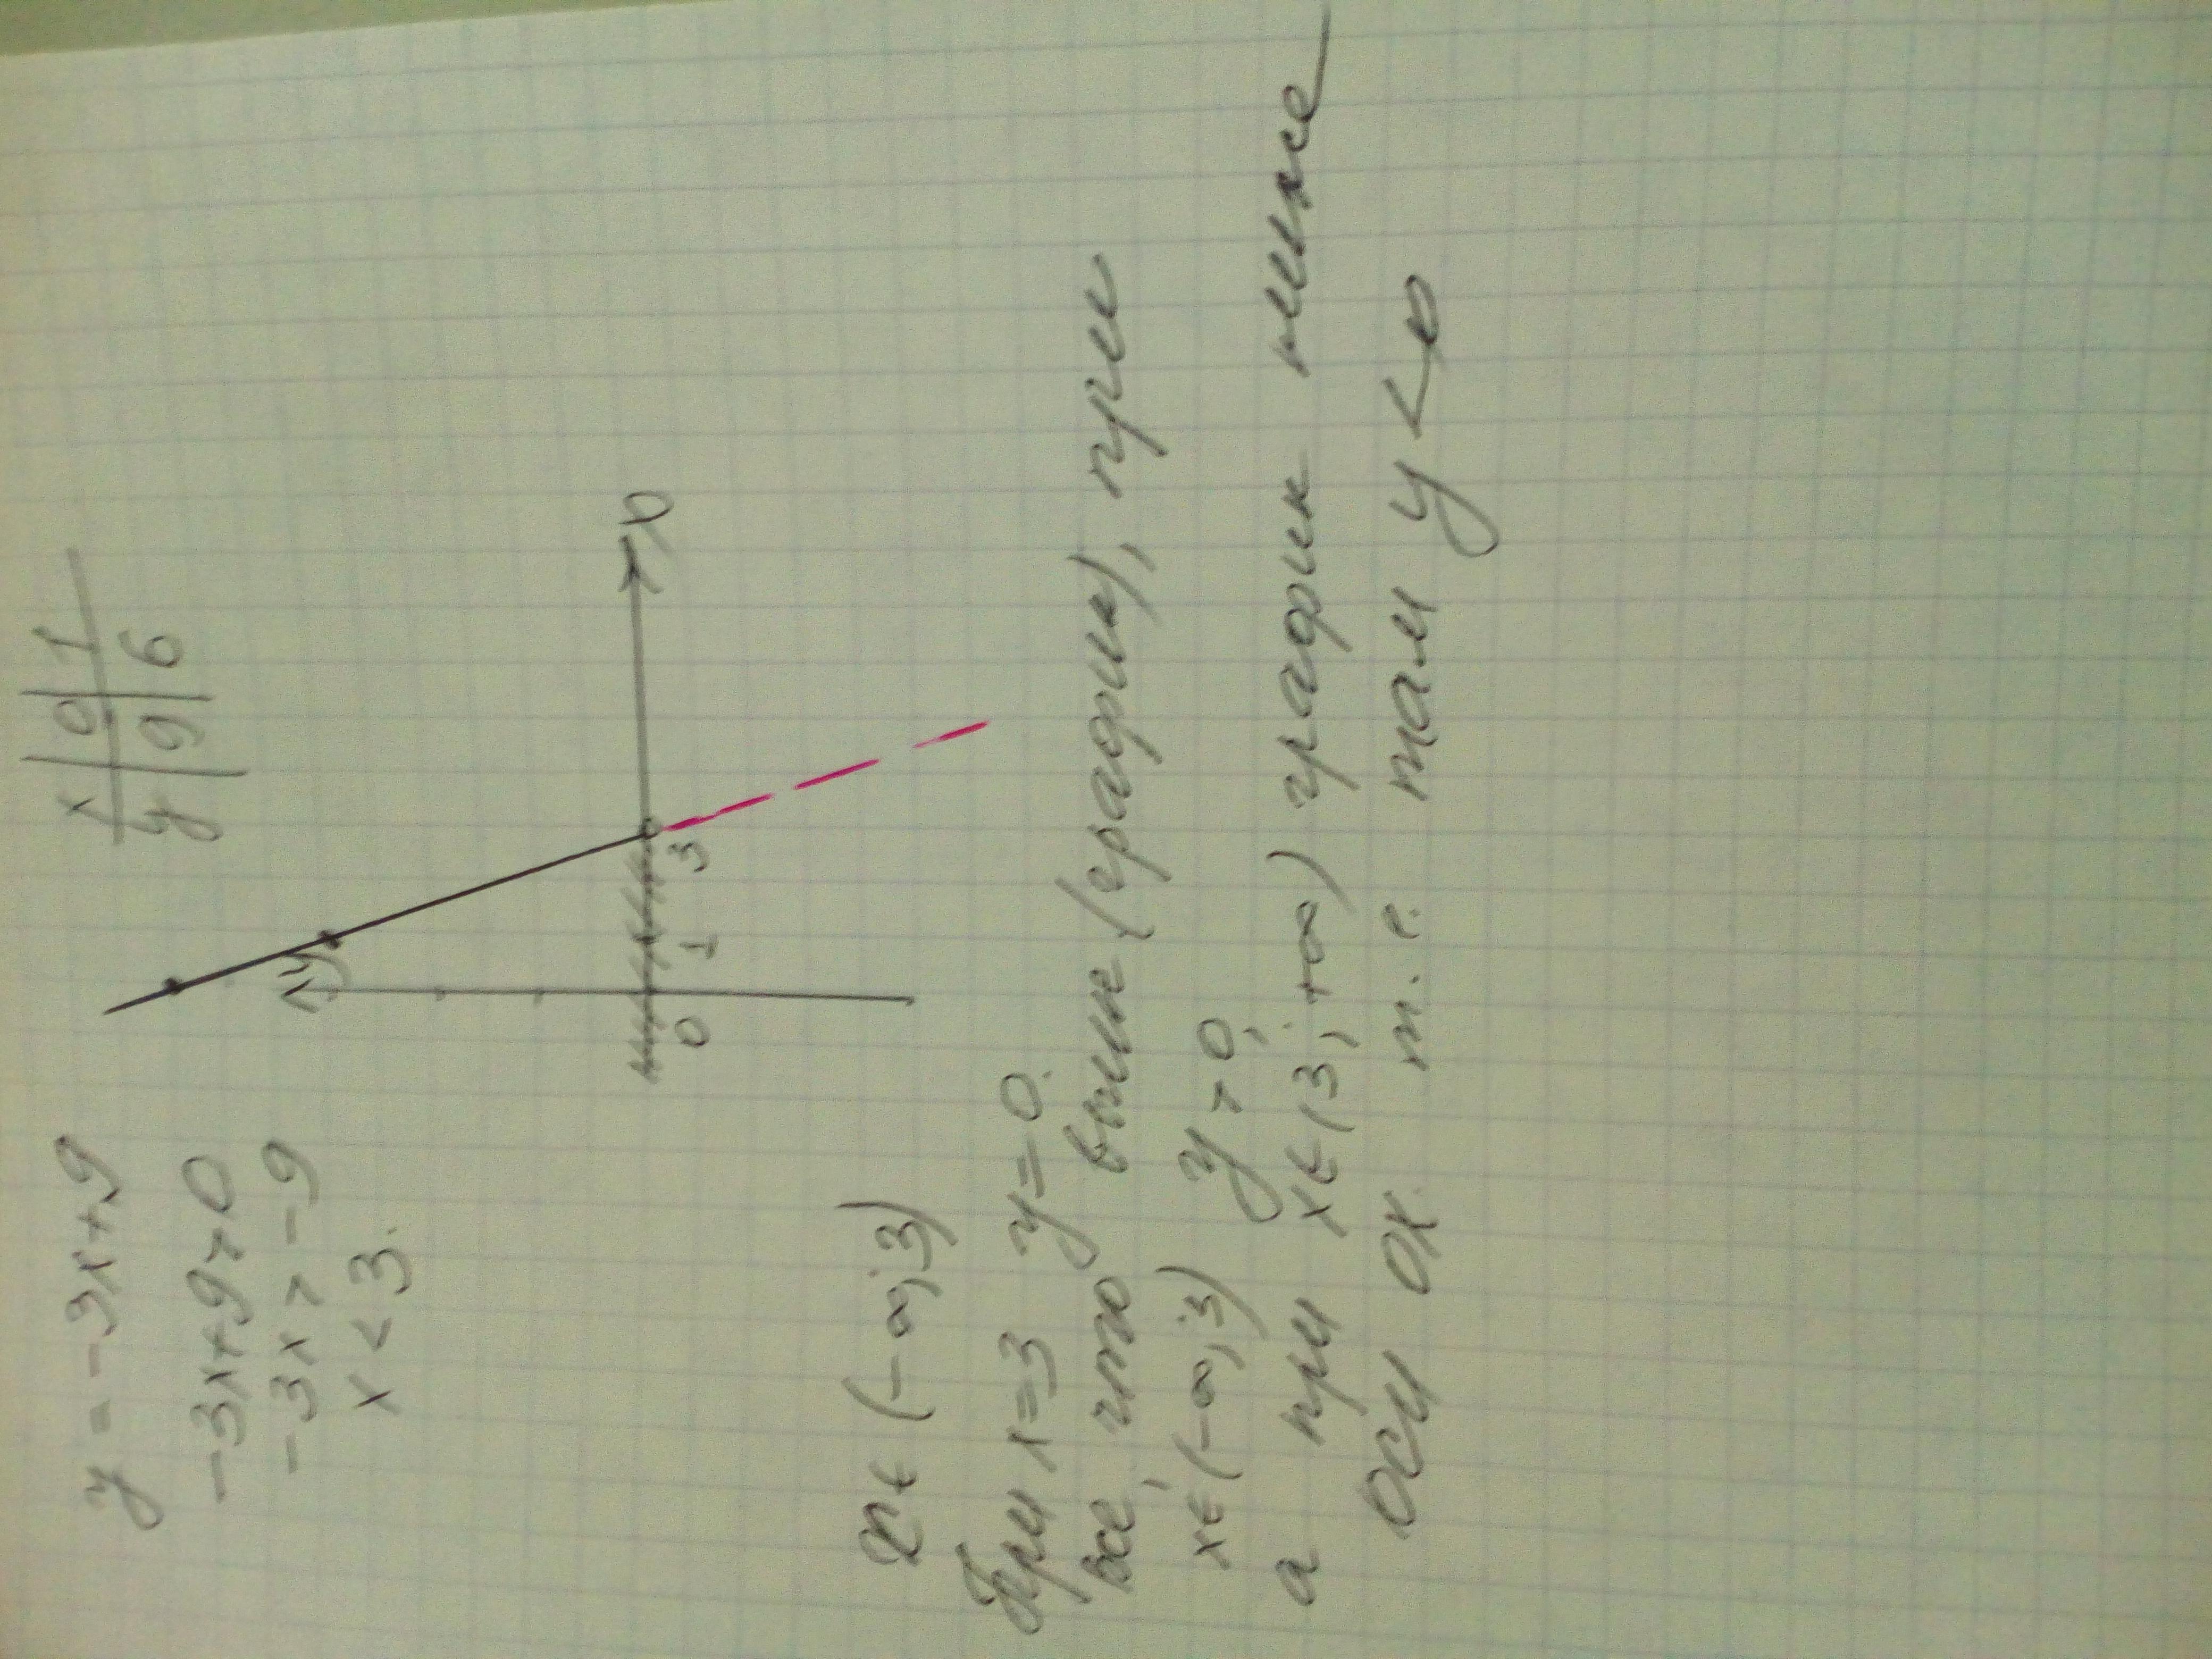 y = -3x+9
x | 0 | 1
y | 9 | 6
-3x+9>0
-3x > -9
x < 3.
y
x
0 1 3
x∈(-∞;3)
При x=3 y=0.
все, что выше (график), при
x∈(-∞;3) y>0,
а при x∈(3;+∞) график ниже
оси ОХ т.е. там y<0